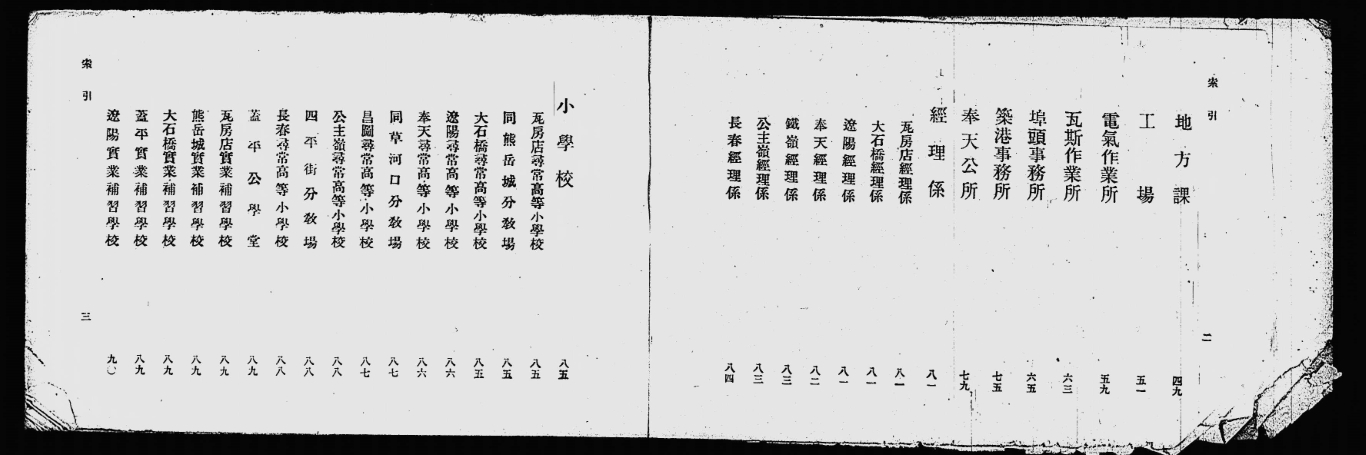 索引
二
地方課 四九
工場 五一
電氣作業所 五九
瓦斯作業所 六三
埠頭事務所 六五
築港事務所 七五
奉天公所 七九
經理係 八一
瓦房店經理係 八一
大石橋經理係 八一
遼陽經理係 八一
奉天經理係 八二
鐵嶺經理係 八三
公主嶺經理係 八三
長春經理係 八四
小學校 八五
瓦房店尋常高等小學校 八五
同熊岳城分教場 八五
大石橋尋常高等小學校 八五
遼陽尋常高等小學校 八六
奉天尋常高等小學校 八六
同草河口分教場 八七
昌圖尋常高等小學校 八七
公主嶺尋常高等小學校 八八
四平街分教場 八八
長春尋常高等小學校 八八
蓋平公學堂 八九
瓦房店實業補習學校 八九
熊岳城實業補習學校 八九
大石橋實業補習學校 八九
蓋平實業補習學校 八九
遼陽實業補習學校 九〇
索引
三